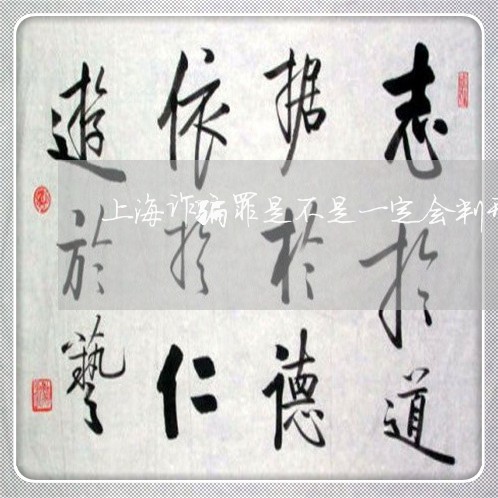 志於道
据於德
依於仁
遊於藝
上海诈骗罪是不是一定会判